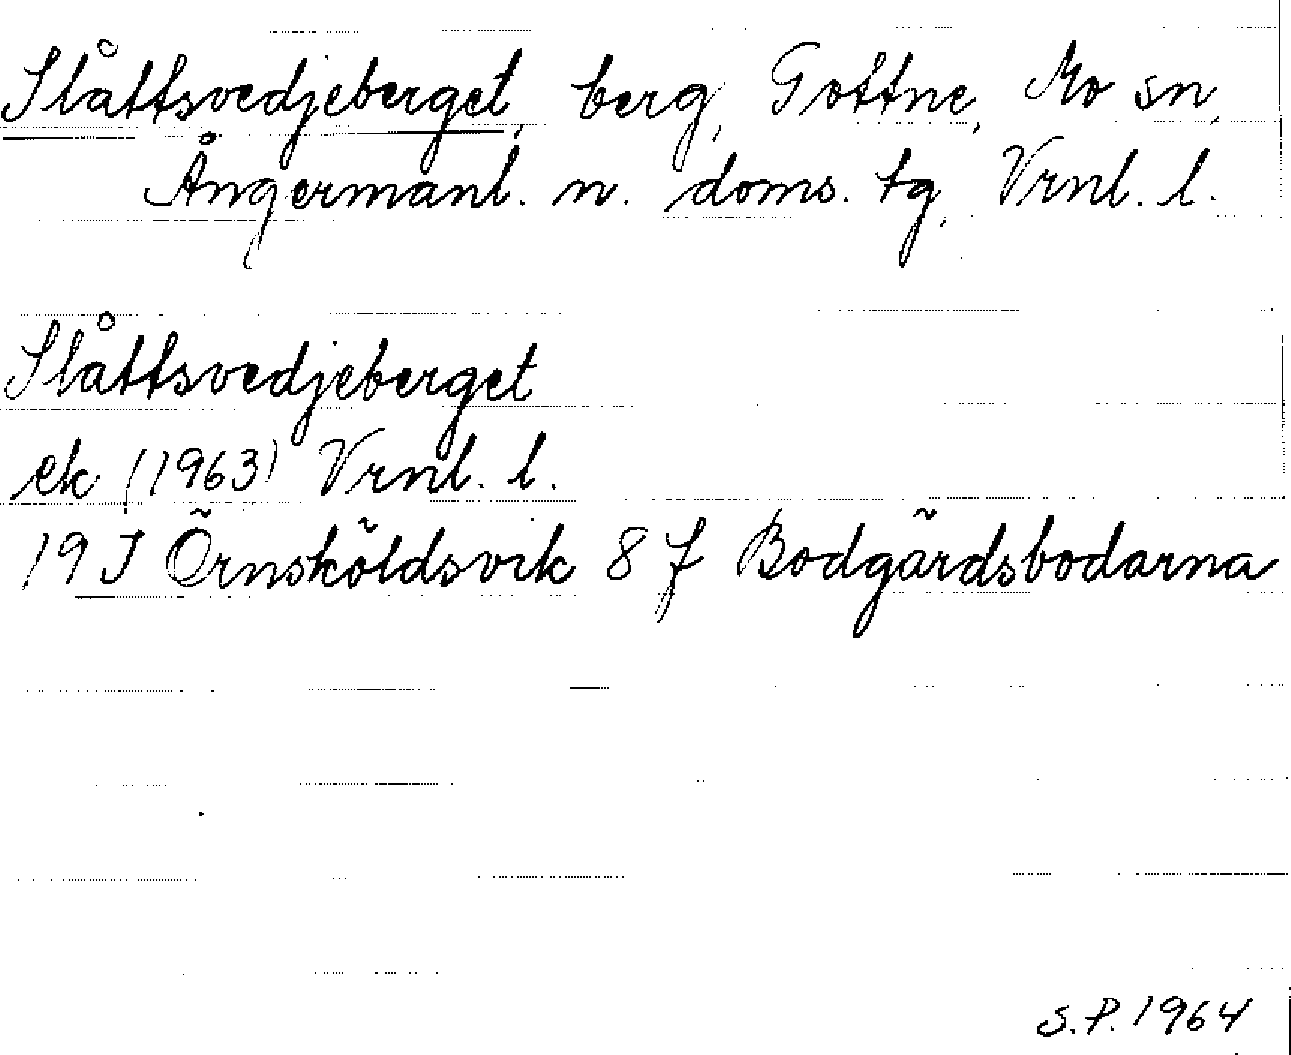 Slåttsvedjeberget, berg, Gottne, Mo sn,
Ångermanl. n. doms. tg, Vrnl. l.
Slåttsvedjeberget
ek (1963) Vrnl. l.
19 J Örnsköldsvik 8 f Bodgärdsbodarna
S.P. 1964